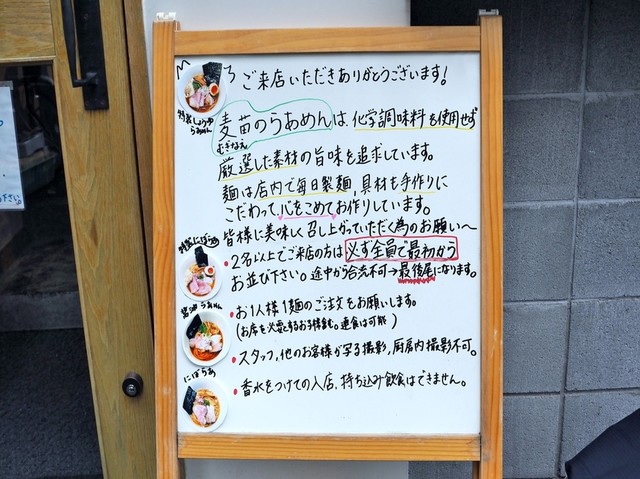 ご来店いただきありがとうございます!
特製しょうゆ
らぁめん
麦苗のらぁめんは、化学調味料を使用せず
むぎなえ
厳選した素材の旨味を追求しています。
麺は店内で毎日製麺、具材も手作りに
こだわって、心をこめてお作りしています。
皆様に美味しく召し上がっていただく為のお願い〜
特製にぼらぁ
・2名以上でご来店の方は必ず全員で最初から
お並び下さい。途中から合流不可→最後尾になります。
らぁめん
・お1人様1麺のご注文をお願いします。
・スタッフ、他のお客様が写る撮影、厨房内撮影不可。
にぼらぁ
・香水をつけての入店、持ち込み飲食はできません。